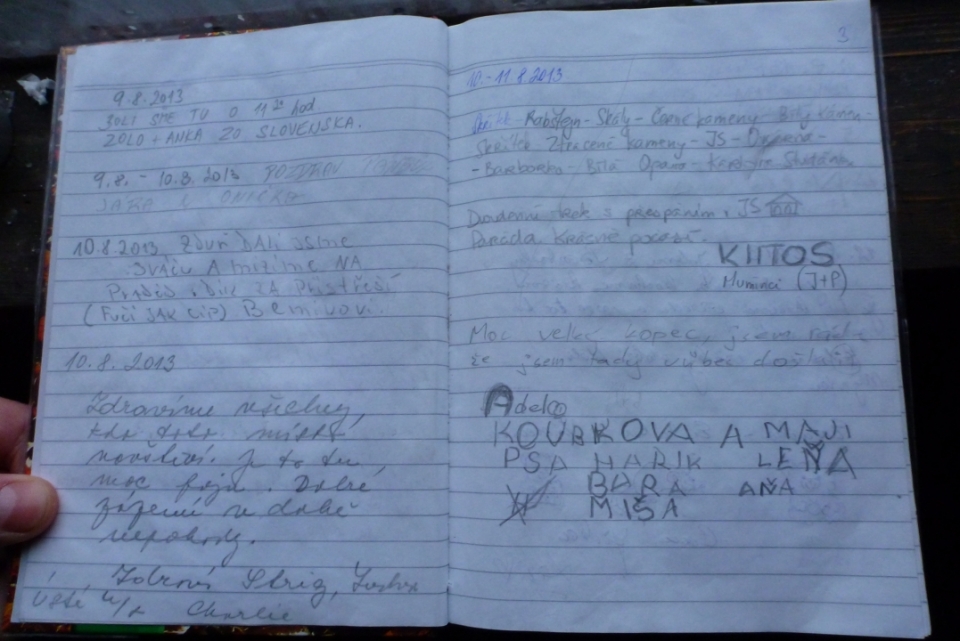 9.8.2013
BOLI SME TU O 11 20 hod.
ZOLO + ANKA ZO SLOVENSKA.
9.8. - 10.8. 2013 POZDRAV
JARA
10.8.2013 Zduř DALi JSme
SVAČU A mizíme NA
Praděd. Dík ZA Přístřeší
(Fučí JAK CIP) Bemikovi.
10.8.2013
Zdravíme všechny,
kdo toto místo
navštíví. Je to tu
moc fajn. Dobré
zázemí v době
nepohody.
Zdraví Strig,
Ústí n/L Charlie
3
10.-11.8.2013
Rabštejn - Skály - Černé kameny - Bílý kámen -
Skřítek Ztracené kameny - JS -
- Barborka - Bílá Opava - Karlova Studánka
s přespáním. JS
Krásné počasí.
KIITOS
Muminci (J+P)
Moc velky kopec, jsem ráda
že jsem tady vůbec došla
Adela
KOUBKOVA A MAJI
PSA HARIK LEŇA
BARA AŇA
MIŠA